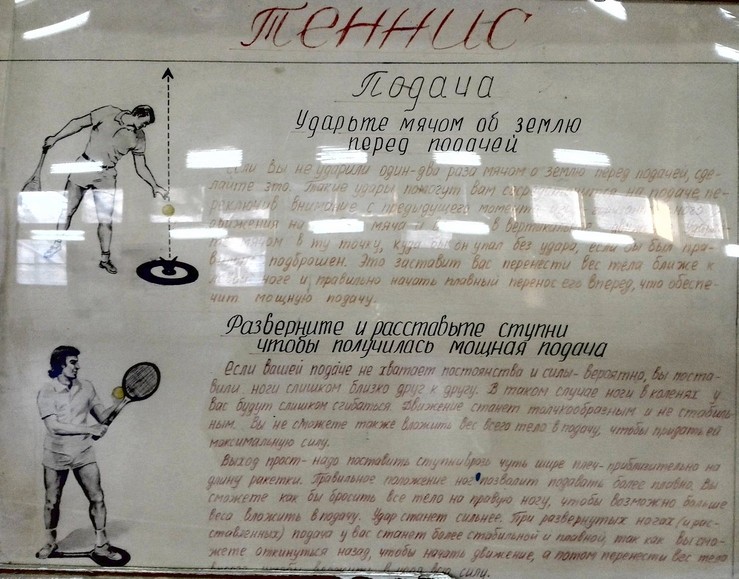 Теннис
Подача
Ударьте мячом об землю
перед подачей
Если Вы не ударили один-два раза мячом о землю перед подачей, сде-
лайте это. Такие удары помогут вам на подаче, пе-
реключив внимание с предыдущего
движения на мяча и в
в ту точку, куда бы он упал без удара, если бы был пра-
подброшен. Это заставит вас перенести вес тела ближе к
ноге и правильно начать плавный перенос его вперед, что обеспе-
чит мощную подачу.
Разверните и расставьте ступни
чтобы получилась мощная подача
Если вашей подаче не хватает постоянства и силы - вероятно, вы поста-
вили ноги слишком близко друг к другу. В таком случае ноги в каленях у
вас будут слишком сгибаться. Движение станет толчкообразным и не стабиль-
ным. Вы не сможете также вложить вес всего тела в подачу, чтобы придать ей
максимальную силу.
Выход прост- надо поставить ступни врозь чуть шире плеч-приблизительно на
длину ракетки. Правильное положение ног позволит подавать более плавно. Вы
сможете как бы бросить все тело на правую ногу, чтобы возможно больше
веса вложить в подачу. Удар станет сильнее. При развернутых ногах (и рас-
ставленных) подача у вас станет более стабильной и плавной, так как вы смо-
жете откинуться назад, чтобы начать движение, а потом перенести вес тела
силу.